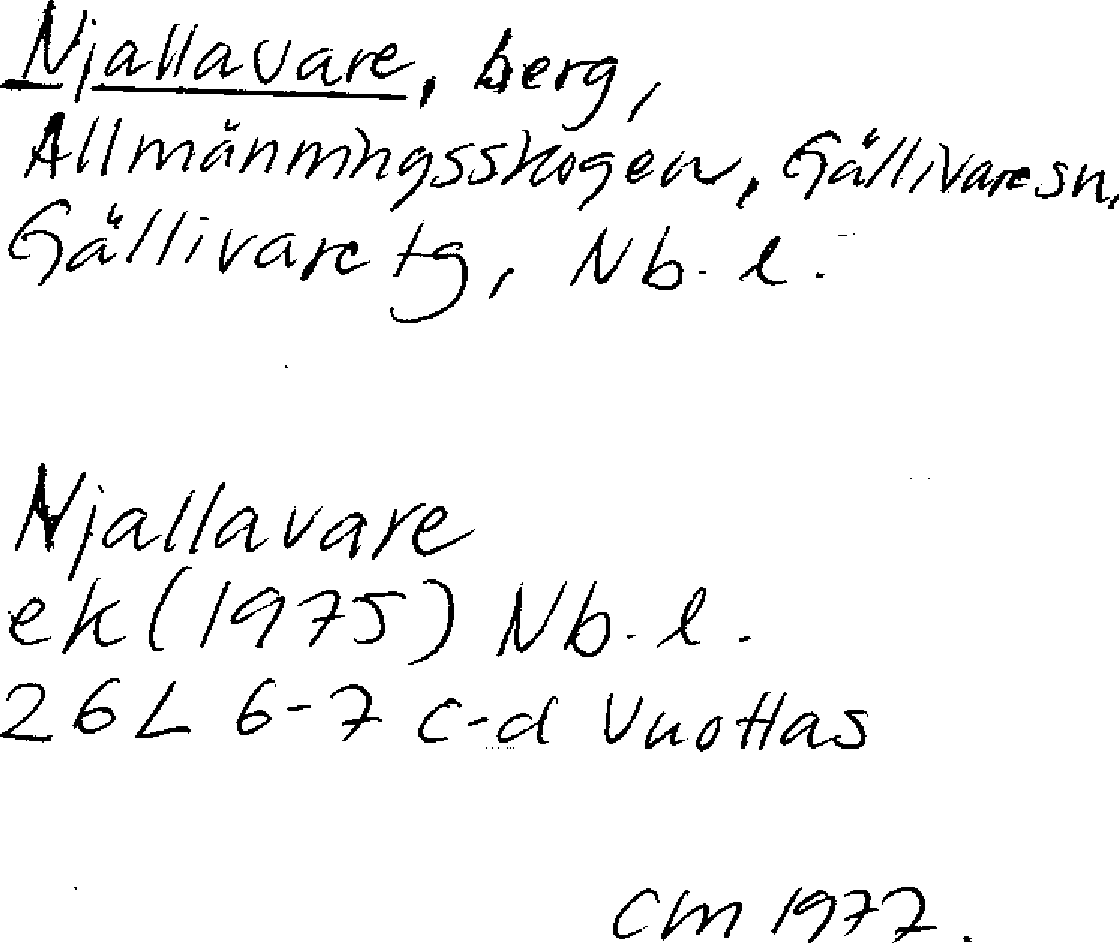 Njallavare, berg,
Allmänningsskogen, Gällivare sn,
Gällivare tg, Nb. l.
Njallavare
ek (1975) Nb. l.
26L 6-7 c-d Vuottas
CM 1977.